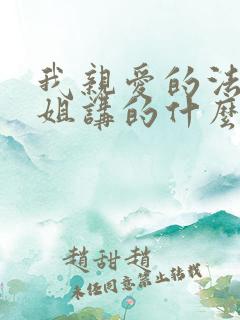 我親愛的法
姐講的什麼
趙甜趙
未經同意禁止轉載